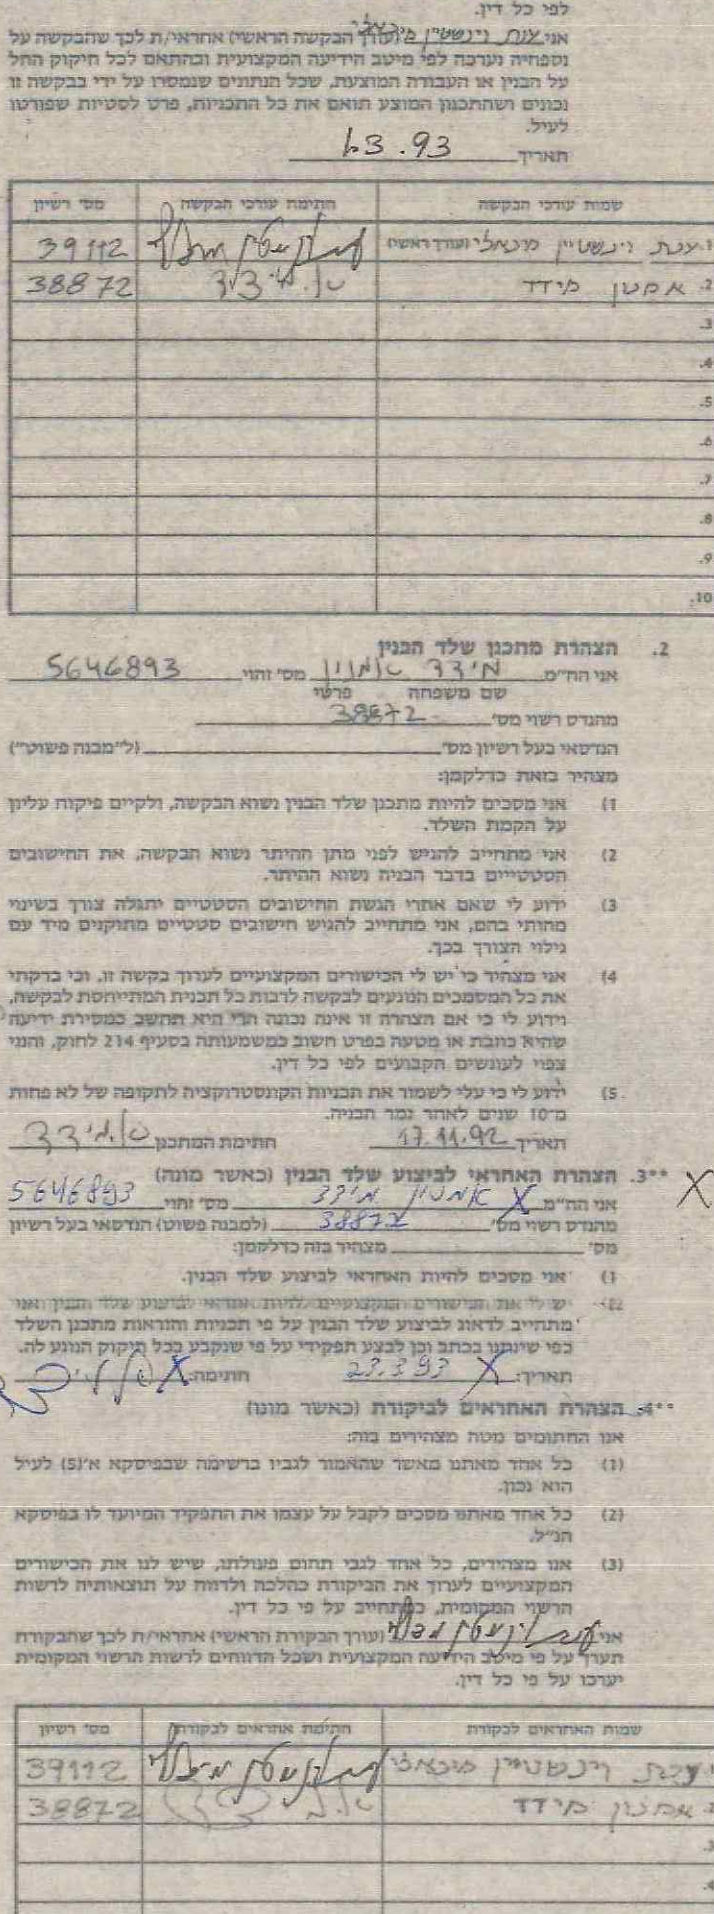 לפי כל דין.
אני ענת וינשטיין מיכאלי (עורך הבקשה הראשי) אחראי/ת לכך שהבקשה על
נספחיה נערכה לפי מיטב הידיעה המקצועית ובהתאם לכל חיקוק החל
על הבנין או העבודה המוצעת, שכל הנתונים שנמסרו על ידי בבקשה זו
נכונים ושהתכנון המוצע תואם את כל התכניות, פרט לסטיות שפורטו
לעיל.
תאריך 1.3.93
שמות עורכי הבקשה חתימת עורכי הבקשה מס' רשיון
1. ענת וינשטיין מיכאלי (עורך ראשי) 39112
2. אמנון מידד א. מידד 38872
3.
4.
5.
6.
7.
8.
9.
10.
2. הצהרת מתכנן שלד הבנין
אני הח"מ מידד אמנון מס' זהוי 5646893
שם משפחה פרטי
מהנדס רשוי מס' 38872
הנדסאי בעל רשיון מס' (ל"מבנה פשוט")
מצהיר בזאת כדלקמן:
1) אני מסכים להיות מתכנן שלד הבנין נשוא הבקשה, ולקיים פיקוח עליון
על הקמת השלד.
2) אני מתחייב להגיש לפני מתן ההיתר נשוא הבקשה, את החישובים
הסטטיים בדבר הבניה נשוא ההיתר.
3) ידוע לי שאם אחרי הגשת החישובים הסטטיים יתגלה צורך בשינוי
מהותי בהם, אני מתחייב להגיש חישובים סטטיים מתוקנים מיד עם
גילוי הצורך בכך.
4) אני מצהיר כי יש לי הכישורים המקצועיים לערוך בקשה זו, וכי בדקתי
את כל המסמכים הנוגעים לבקשה לרבות כל תכנית המתייחסת לבקשה,
וידוע לי כי אם הצהרה זו אינה נכונה הרי היא תחשב כמסירת ידיעה
שהיא כוזבת או מטעה בפרט חשוב כמשמעותה בסעיף 214 לחוק, והנני
צפוי לעונשים הקבועים לפי כל דין.
5) ידוע לי כי עלי לשמור את תכניות הקונסטרוקציה לתקופה של לא פחות
מ־10 שנים לאחר גמר הבניה.
תאריך 17.11.92 חתימת המתכנן א. מידד
**3. הצהרת האחראי לביצוע שלד הבנין (כאשר מונה) X
אני הח"מ X אמנון מידד מס' זהוי 5646893
מהנדס רשוי מס' 38872 (למבנה פשוט) הנדסאי בעל רשיון
מס' מצהיר בזה כדלקמן:
1) אני מסכים להיות האחראי לביצוע שלד הבנין.
2) יש לי את הכישורים המקצועיים להיות אחראי לביצוע שלד הבנין ואני
מתחייב לדאוג לביצוע שלד הבנין על פי תכניות והוראות מתכנן השלד
כפי שינתנו בכתב וכן לבצע תפקידי על פי שנקבע בכל חיקוק הנוגע לה.
תאריך: X 23.3.93 חתימה: X
**4. הצהרת האחראים לביקורת (כאשר מונו)
אנו החתומים מטה מצהירים בזה:
(1) כל אחד מאתנו מאשר שהאמור לגביו ברשימה שבפיסקא א'(5) לעיל
הוא נכון.
(2) כל אחד מאתנו מסכים לקבל על עצמו את התפקיד המיועד לו בפיסקא
הנ"ל.
(3) אנו מצהירים, כל אחד לגבי תחום פעולתו, שיש לנו את הכישורים
המקצועיים לערוך את הביקורת כהלכה ולדווח על תוצאותיה לרשות
הרשוי המקומית, כמתחייב על פי כל דין.
אני ענת וינשטיין מיכאלי (עורך הבקורת הראשי) אחראי/ת לכך שהבקורת
תערך על פי מיטב הידיעה המקצועית ושכל הדווחים לרשות הרשוי המקומית
יערכו על פי כל דין.
שמות האחראים לבקורת חתימת אחראים לבקורת מס' רשיון
1. ענת וינשטיין מיכאלי 39112
2. אמנון מידד 38872
3.
4.